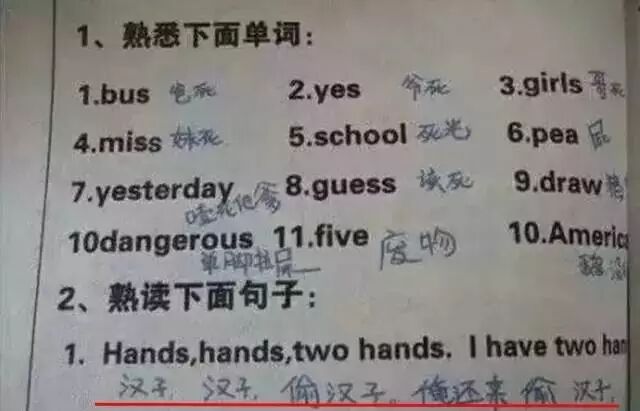 1、熟悉下面单词：
1.bus 包死 2.yes 爷死 3.girls 哥死
4.miss 妹死 5.school 死光 6.pea 屁
7.yesterday 8.guess 该死 9.draw
噎死他爹
10dangerous 11.five 废物 10.Americ
单脚拉屎
2、熟读下面句子：
1. Hands,hands,two hands. I have two han
汉子，汉子，偷汉子。俺还来偷汉子，